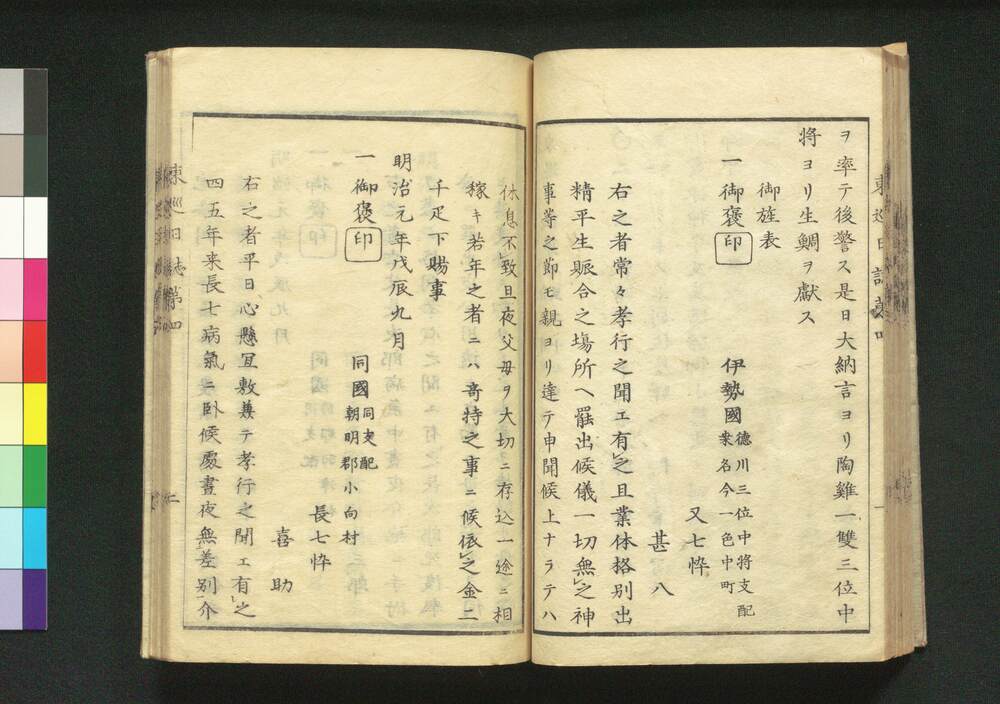 ヲ率テ後警ス是日大納言ヨリ陶雞一雙三位中
将ヨリ生鯛ヲ獻ス
御旌表
一御褒印 伊勢國 德川三位中将支配
桒名今一色中町
又七忰
甚八
右之者常々孝行之聞エ有之且業体格別出
精平生賑合之場所ヘ罷出候儀一切無之神
事等之節モ親ヨリ達テ申聞候上ナラテハ
休息不致旦夜父母ヲ大切ニ存込一途ニ相
稼キ若年之者ニハ竒特之事ニ候依之金二
千疋下賜事
明治元年戊辰九月
一御褒印 同國 同支配
朝明郡小向村
長七忰
喜助
右之者平日心懸冝敷兼テ孝行之聞エ有之
四五年来長七病氣ニ臥候處晝夜無差别介
東巡日志 第四